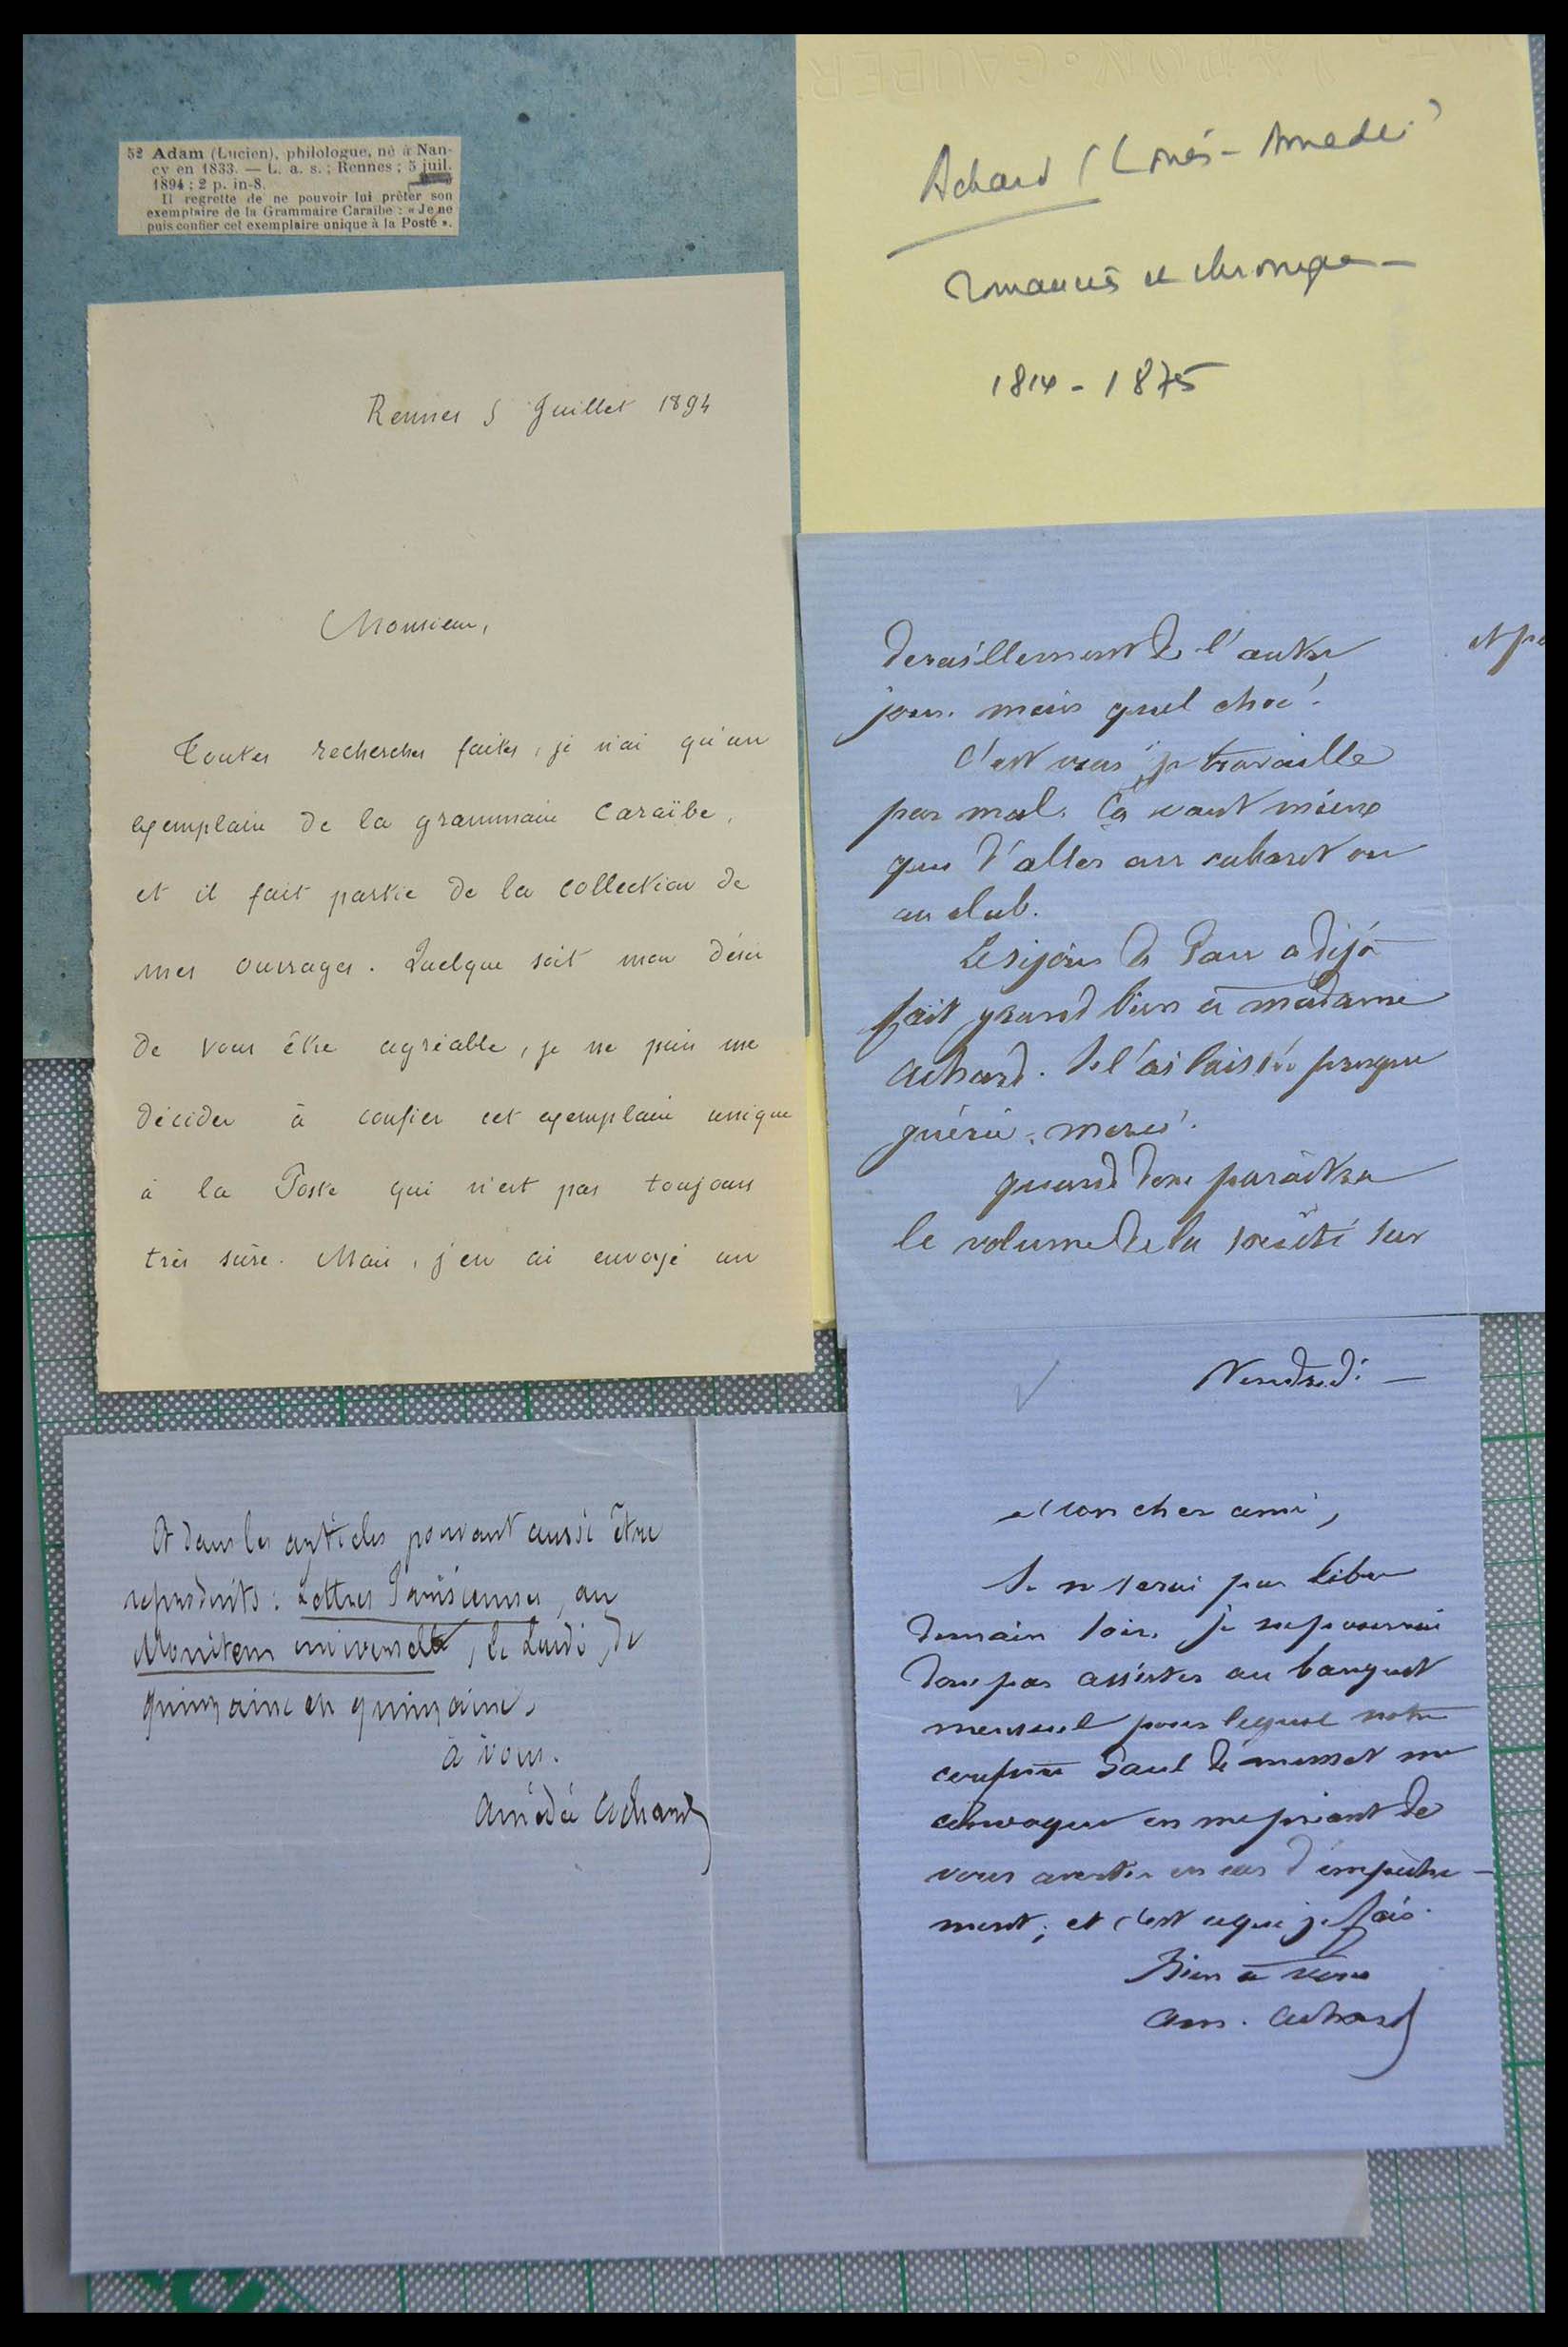 52 Adam (Lucien), philologue, né à Nan-
cy en 1833. — L. a. s.; Rennes; 5 juil.
1894; 2 p. in-8.
Il regrette de ne pouvoir lui prêter son
exemplaire de la Grammaire Caraïbe : « Je ne
puis confier cet exemplaire unique à la Poste ».
Rennes 5 Juillet 1894
Monsieur,
Toutes recherches faites, je n'ai qu'un
exemplaire de la grammaire Caraïbe,
et il fait partie de la collection de
mes ouvrages. Quelque soit mon désir
de vous être agréable, je ne puis me
décider à confier cet exemplaire unique
à la Poste qui n'est pas toujours
très sûre. Mais, j'en ai envoyé un
Achard (Louis-Amedée)
romancier et chroniqueur
1814 - 1875
deraillement de l'autre
jour. mais quel choc!
C'est vrai je travaille
pas mal. Ça vaut mieux
que d'aller au cabaret ou
au club.
Le séjour de Pau a déjà
fait grand bien à madame
Achard. Je l'ai laissée presque
guérie. merci.
quand donc paraîtra
le volume de la société sur
et
Vendredi —
Mon cher ami,
Je ne serai pas libre
demain soir. je ne pourrai
donc pas assister au banquet
mensuel pour lequel notre
confrère Paul de musset me
convoque en me priant de
vous avertir en cas d'empêche-
ment; et c'est ce que je fais.
Bien à vous
Am. Achard
Et dans les articles pouvant aussi être
reproduits : Lettres Parisiennes, au
Moniteur universel, le Lundi, de
quinzaine en quinzaine.
à vous.
Amédée Achard